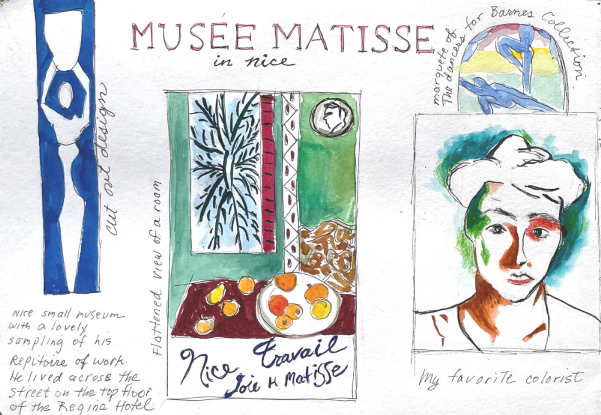 MUSÉE MATISSE
in nice
marquete of
The dancers for Barnes Collection
cut out design
Flattened view of a room
Nice Travail
Joie H Matisse
Nice small museum
with a lovely
sampling of his
Repitoire of work.
He lived across the
street on the top floor
of the Regina Hotel
My favorite colorist